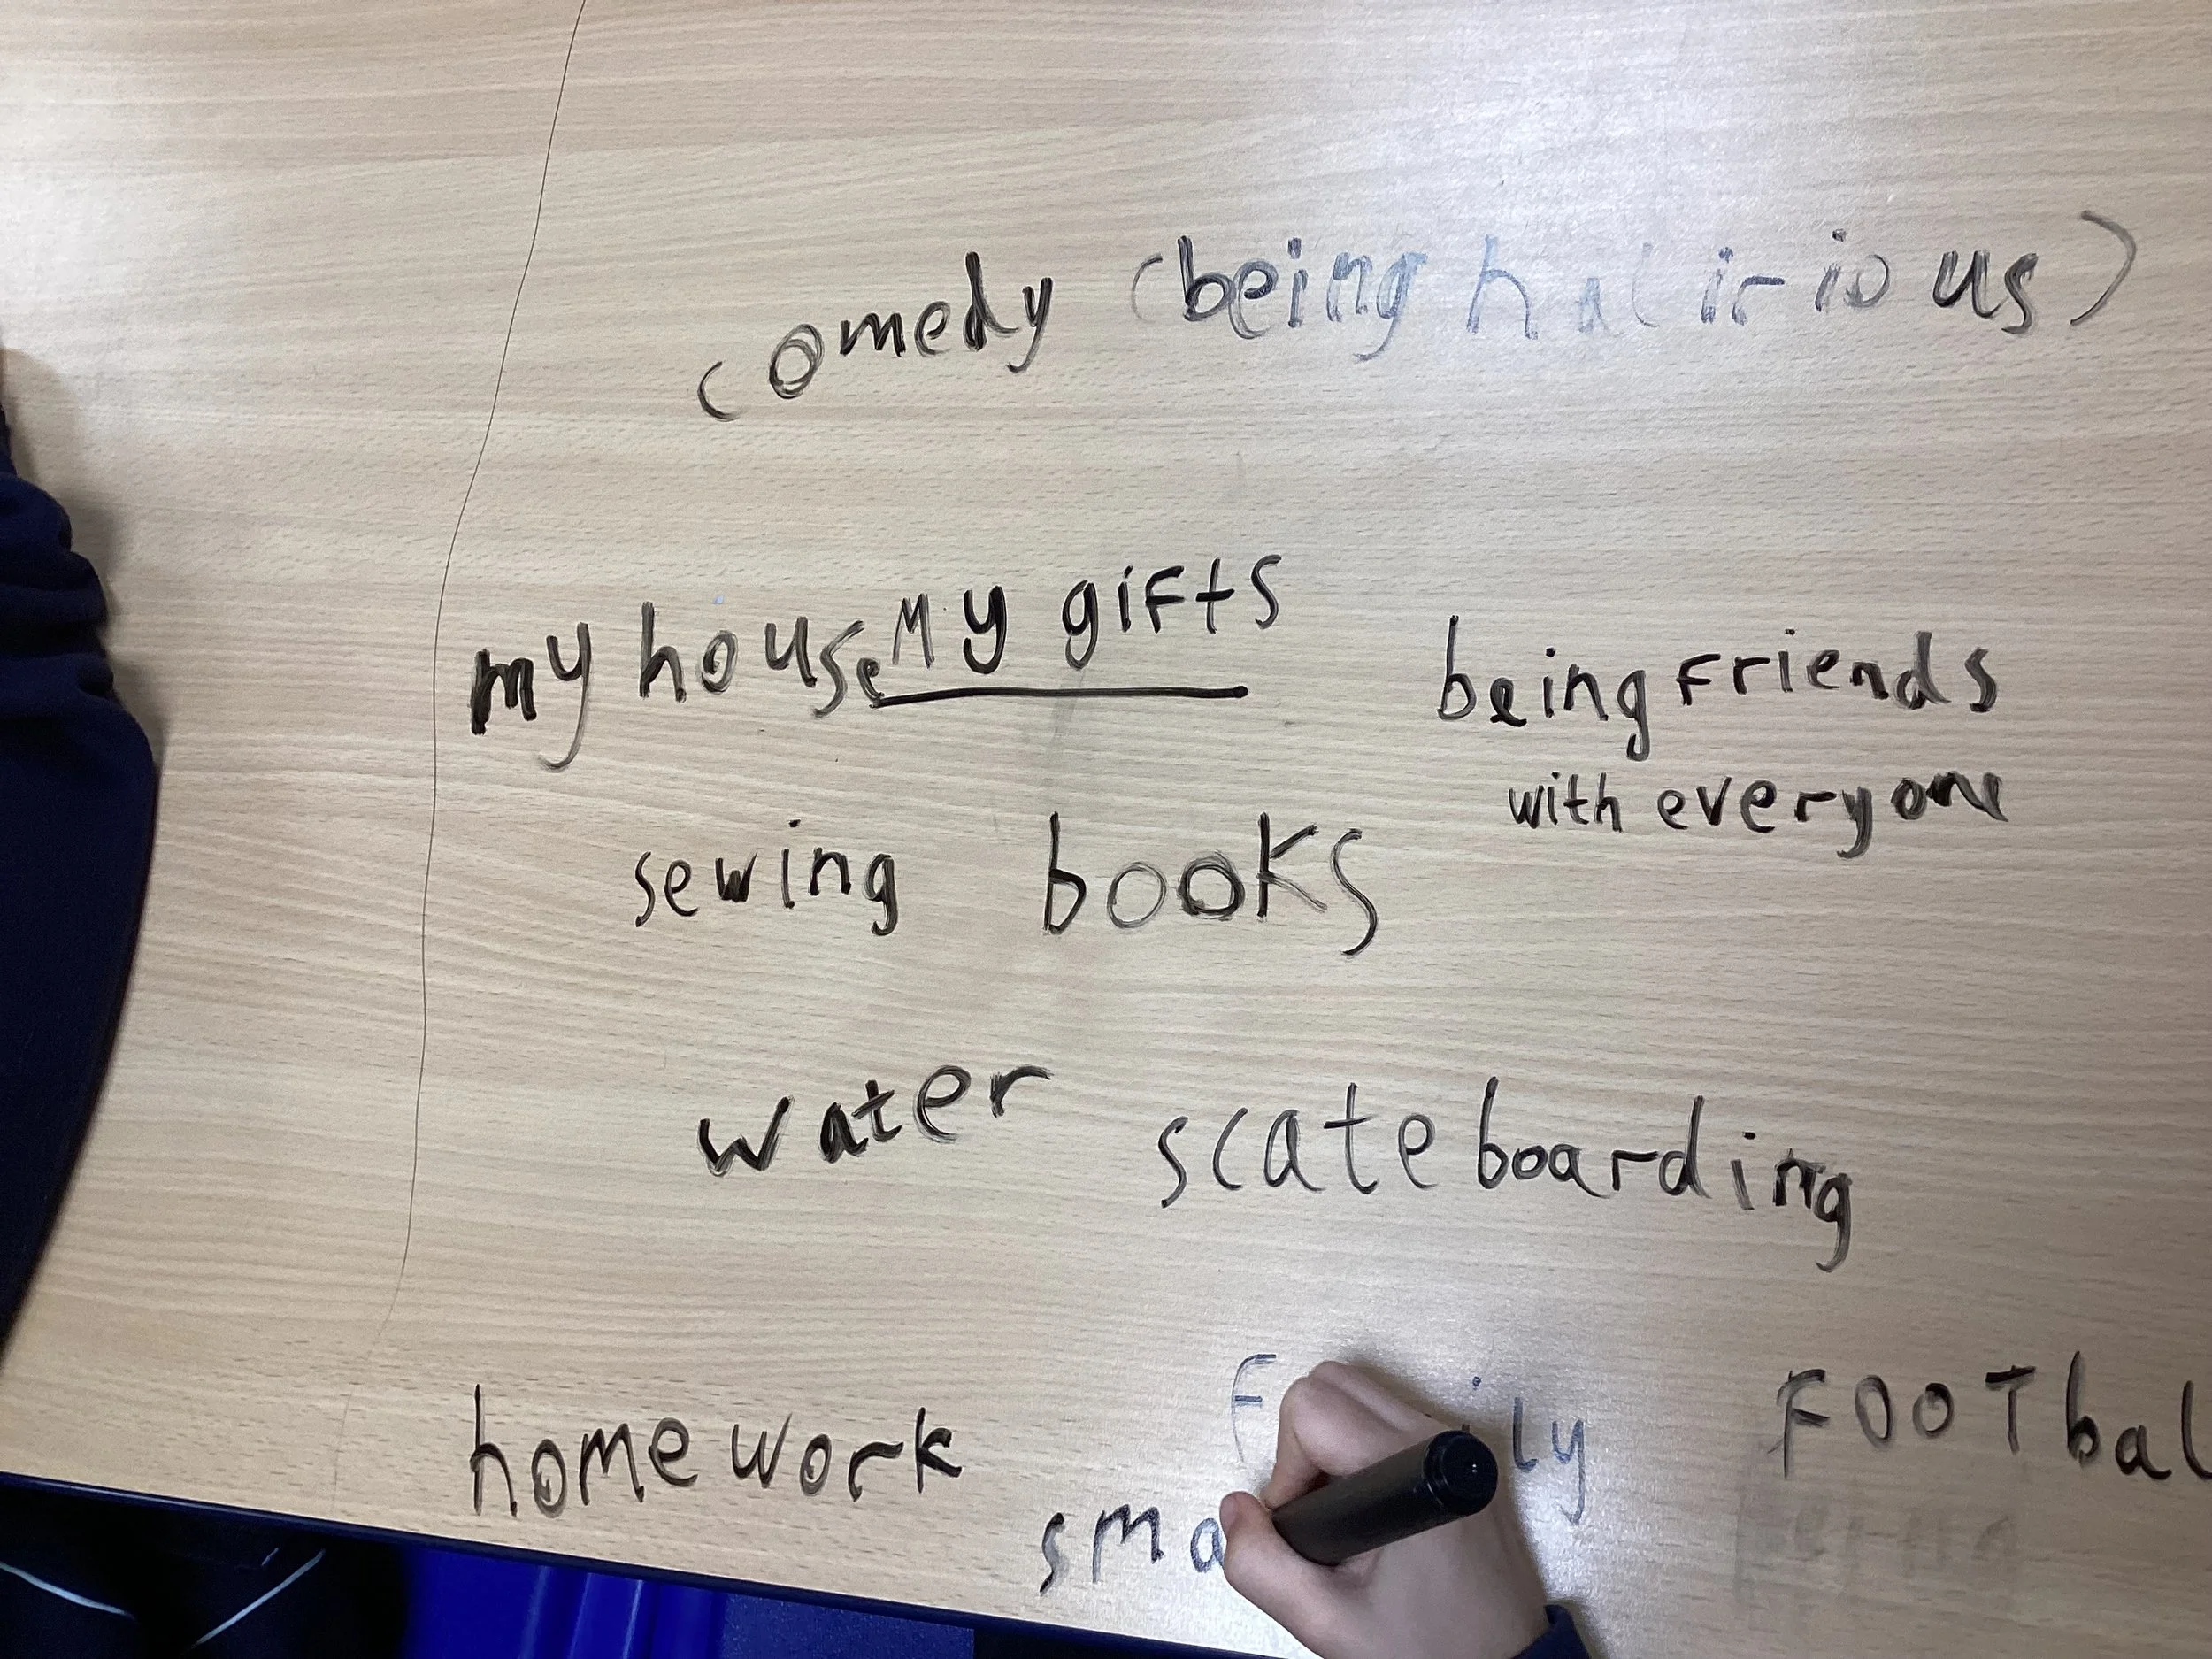 comedy (being halirious)
my house
My gifts
being friends
with everyone
sewing
books
water
scateboarding
homework
FOOTbal
sma